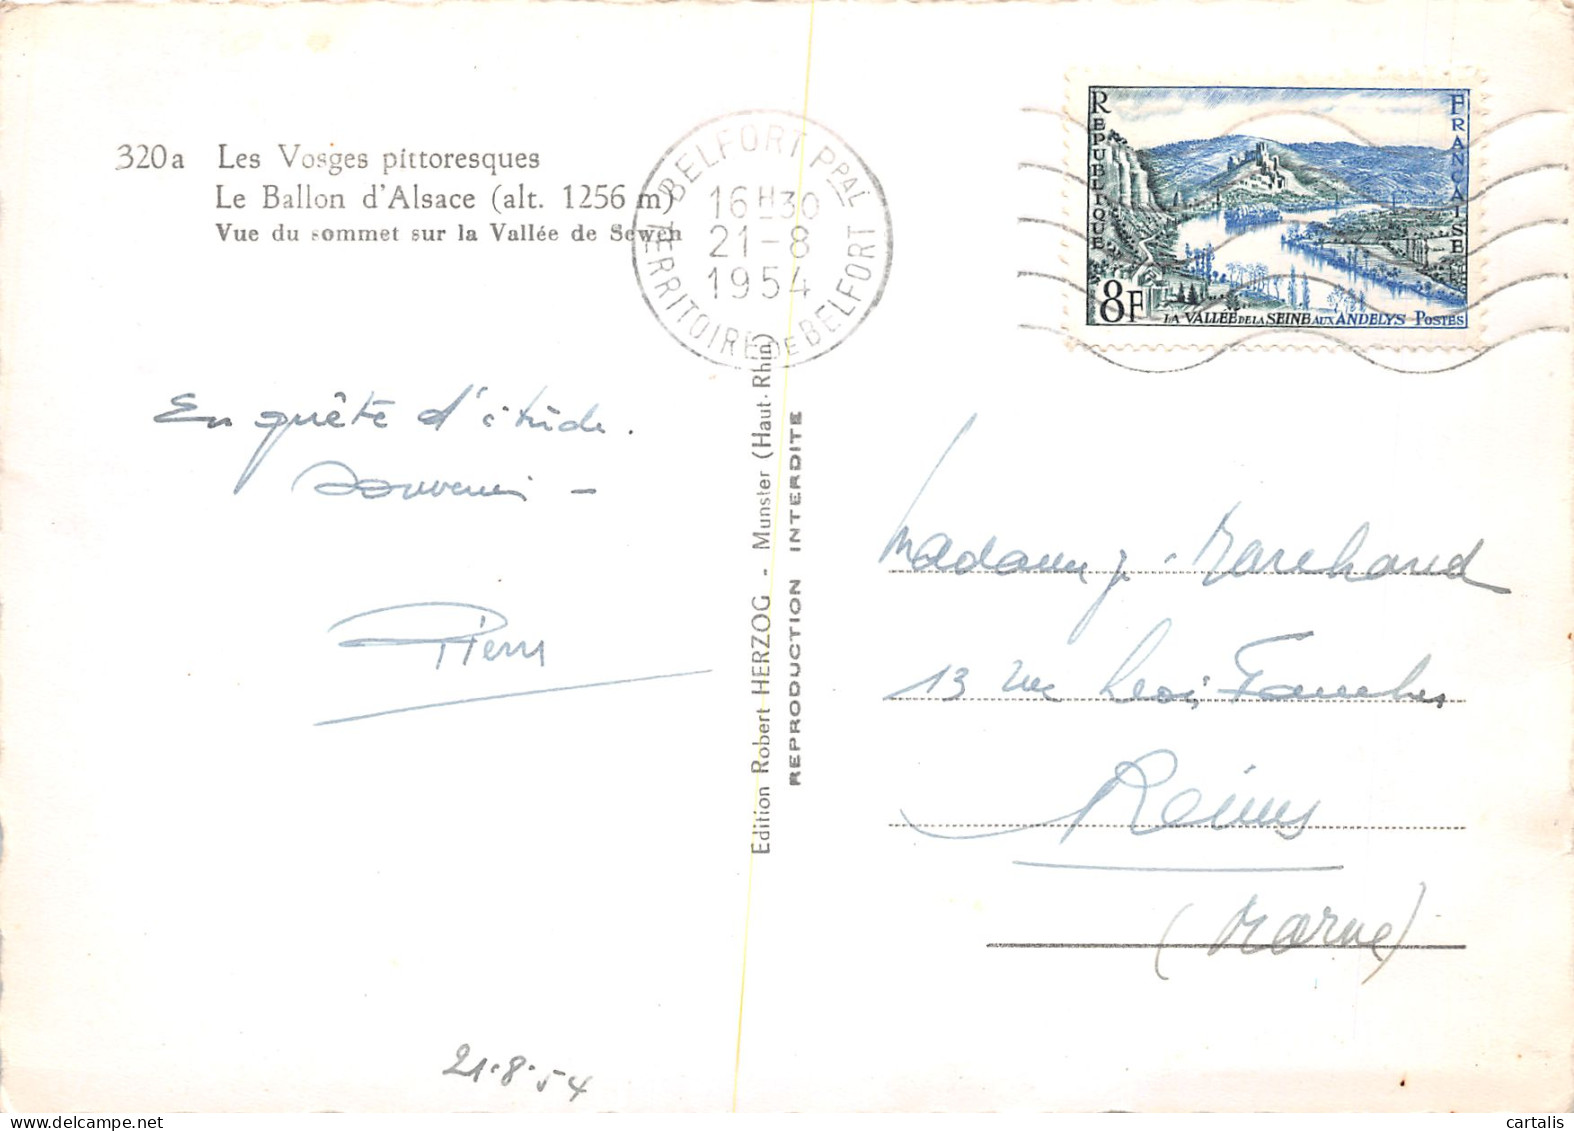 320a Les Vosges pittoresques
Le Ballon d'Alsace (alt. 1256 m)
Vue du sommet sur la Vallée de Sewen
BELFORT PPAL
16H30
21-8
1954
TERRITOIRE DE BELFORT
REPUBLIQUE FRANÇAISE
8F LA VALLÉE DE LA SEINE AUX ANDELYS POSTES
En quête d'étude.
Souvenir -
Pierre
Edition Robert HERZOG - Munster (Haut-Rhin)
REPRODUCTION INTERDITE
Madame J. Marchand
13 rue Léon Faucher
Reims
(Marne)
21.8.54
www.delcampe.net
cartalis